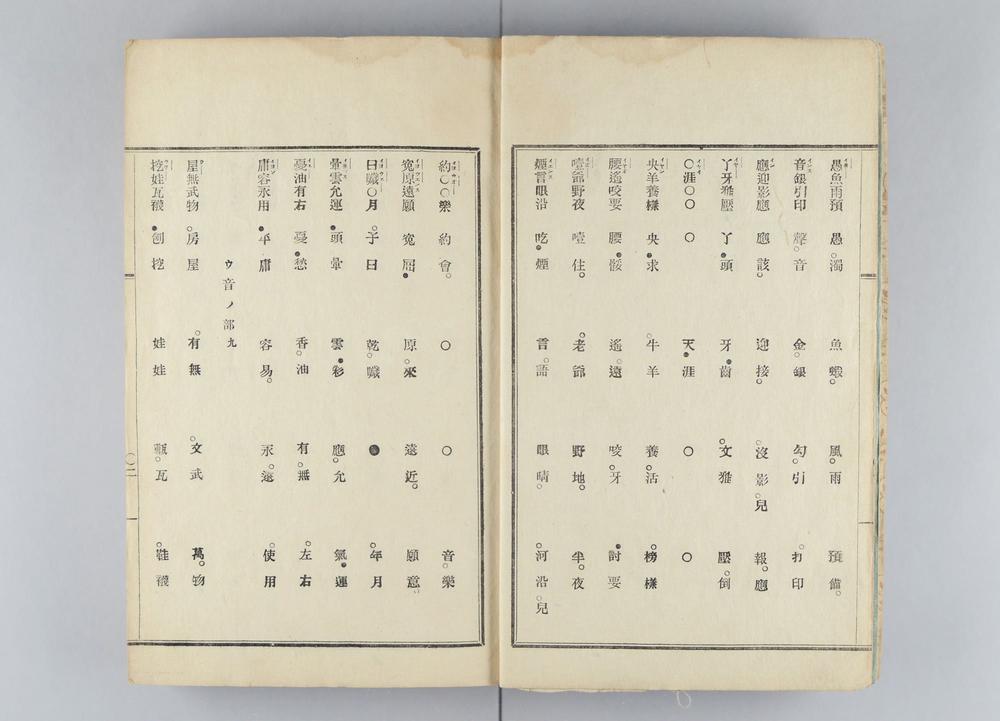 愚魚雨預 愚濁 魚蝦 風雨 預備
音銀引印 聲音 金銀 勾引 打印
應迎影應 應該 迎接 沒影兒 報應
丫牙雅壓 丫頭 牙齒 文雅 壓倒
〇涯〇〇 〇 天涯 〇 〇
央羊養樣 央求 牛羊 養活 榜樣
腰遙咬要 腰 遙遠 咬牙 討要
噎爺野夜 噎住 老爺 野地 半夜
煙言眼沿 吃煙 言語 眼睛 河沿兒
約〇〇樂 約會 〇 〇 音樂
寃原遠願 寃屈 原來 遠近 願意
曰噦〇月 子曰 乾噦 ● 年月
暈雲允運 頭暈 雲彩 應允 氣運
憂油有右 憂愁 香油 有無 左右
庸容永用 平庸 容易 永遠 使用
ウ音ノ部九
屋無武物 房屋 有無 文武 萬物
挖娃瓦襪 刨挖 娃娃 瓦 鞋襪
〇二